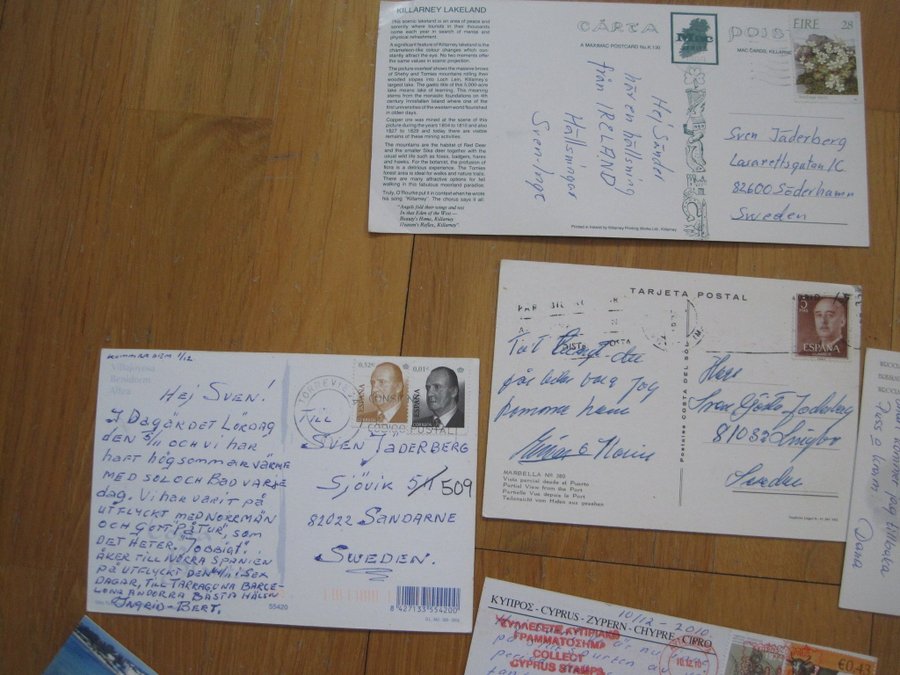 KILLARNEY LAKELAND
This scenic lakeland is an area of peace and
serenity where tourists in their thousands
come each year in search of mental and
physical refreshment.
A significant feature of Killarney lakeland is the
chameleon-like colour changes which con-
stantly attract the eye. No two moments offer
the same values in scenic projection.
The picture overleaf shows the massive brows
of Shehy and Tomies mountains rolling their
wooded slopes into Loch Lein, Killarney's
largest lake. The gaelic title of this 5,000-acre
lake means lake of learning. This meaning
stems from the monastic foundations on 4th
century Innisfallen Island where one of the
first universities of the western world flourished
in olden days.
Copper ore was mined at the scene of this
picture during the years 1804 to 1810 and also
1827 to 1829 and today there are visible
remains of these mining activities.
The mountains are the habitat of Red Deer
and the smaller Sika deer together with the
usual wild life such as foxes, badgers, hares
and hawks. For the botanist, the profusion of
flora is a delirious experience. The Tomies
forest area is ideal for walks and nature trails.
There are many attractive options for fell
walking in this fabulous meerland paradise.
Truly, O'Rourke put it in context when he wrote
his song "Killarney". The chorus says it all:
"Angels fold their wings and rest
In that Eden of the West —
Beauty's Home, Killarney
Heaven's Reflex, Killarney"
CÁRTA POIST
A MAX/MAC POSTCARD No.K 130
Mac
MAC CARDS, KILLARNEY
ÉIRE 28
Hej Sände!
här en hälsning
från IRELAND
Hälsningar
Sven-Inge
Sven Jäderberg
Lasarettsgatan 1C
82600 Söderhamn
Sweden
Printed in Ireland by Killarney Printing Works Ltd., Killarney
TARJETA POSTAL
POSTA
ESPAÑA
Postales COSTA DEL SOL
Herr
Sven Gösta Jäderberg
Sweden
MARBELLA Nº 380
Vista parcial desde el Puerto
Partial View from the Port
Partielle Vue depuis le Port
Teilansicht vom Hafen aus gesehen
Villajoyosa
Benidorm
Altea
HEJ SVEN!
I DAG ÄR DET LÖRDAG
DEN 5/11 OCH VI HAR
HAFT HÖGSOMMARVÄRME
MED SOL OCH BAD VARJE
dag. Vi HAR VARIT PÅ
UTFLYCKT MED NORRMÄN
OCH GOTT "PÅ TUR", SOM
DET HETER. "JOBBIGT".
ÅKER TILL NORRA SPANIEN
PÅ UTFLYCKT DEN 11 i SEX
DAGAR, TILL TARRAGONA BARCE-
LONA ANDORRA BÄSTA HÄLSN
INGRID-BERT.
55420
0,52€ 0,01€
ESPAÑA ESPAÑA
TORREVIEJA
TILL
SVEN JÄDERBERG
SJÖVIK 5/11 509
82022 SANDARNE
SWEDEN.
8 427133 554200
Dana
ΚΥΠΡΟΣ - CYPRUS - ZYPERN - CHYPRE - CIPRO
10/12 - 2010
ΣΥΛΛΕΞΕΤΕ ΚΥΠΡΙΑΚΑ
ΓΡΑΜΜΑΤΟΣΗΜΑ
COLLECT
CYPRUS STAMPS
10.12.10
€0,43